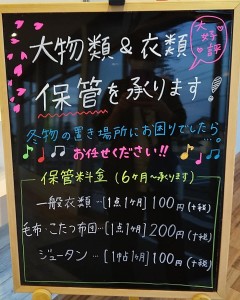 大好評
大物類&衣類
保管を承ります!
冬物の置き場所にお困りでしたら…
お任せください!!
保管料金 (6ヶ月〜承ります)
一般衣類…[1点1ヶ月]100円(+税)
毛布・こたつ布団…[1点1ヶ月]200円(+税)
ジュータン…[1帖1ヶ月]100円(+税)